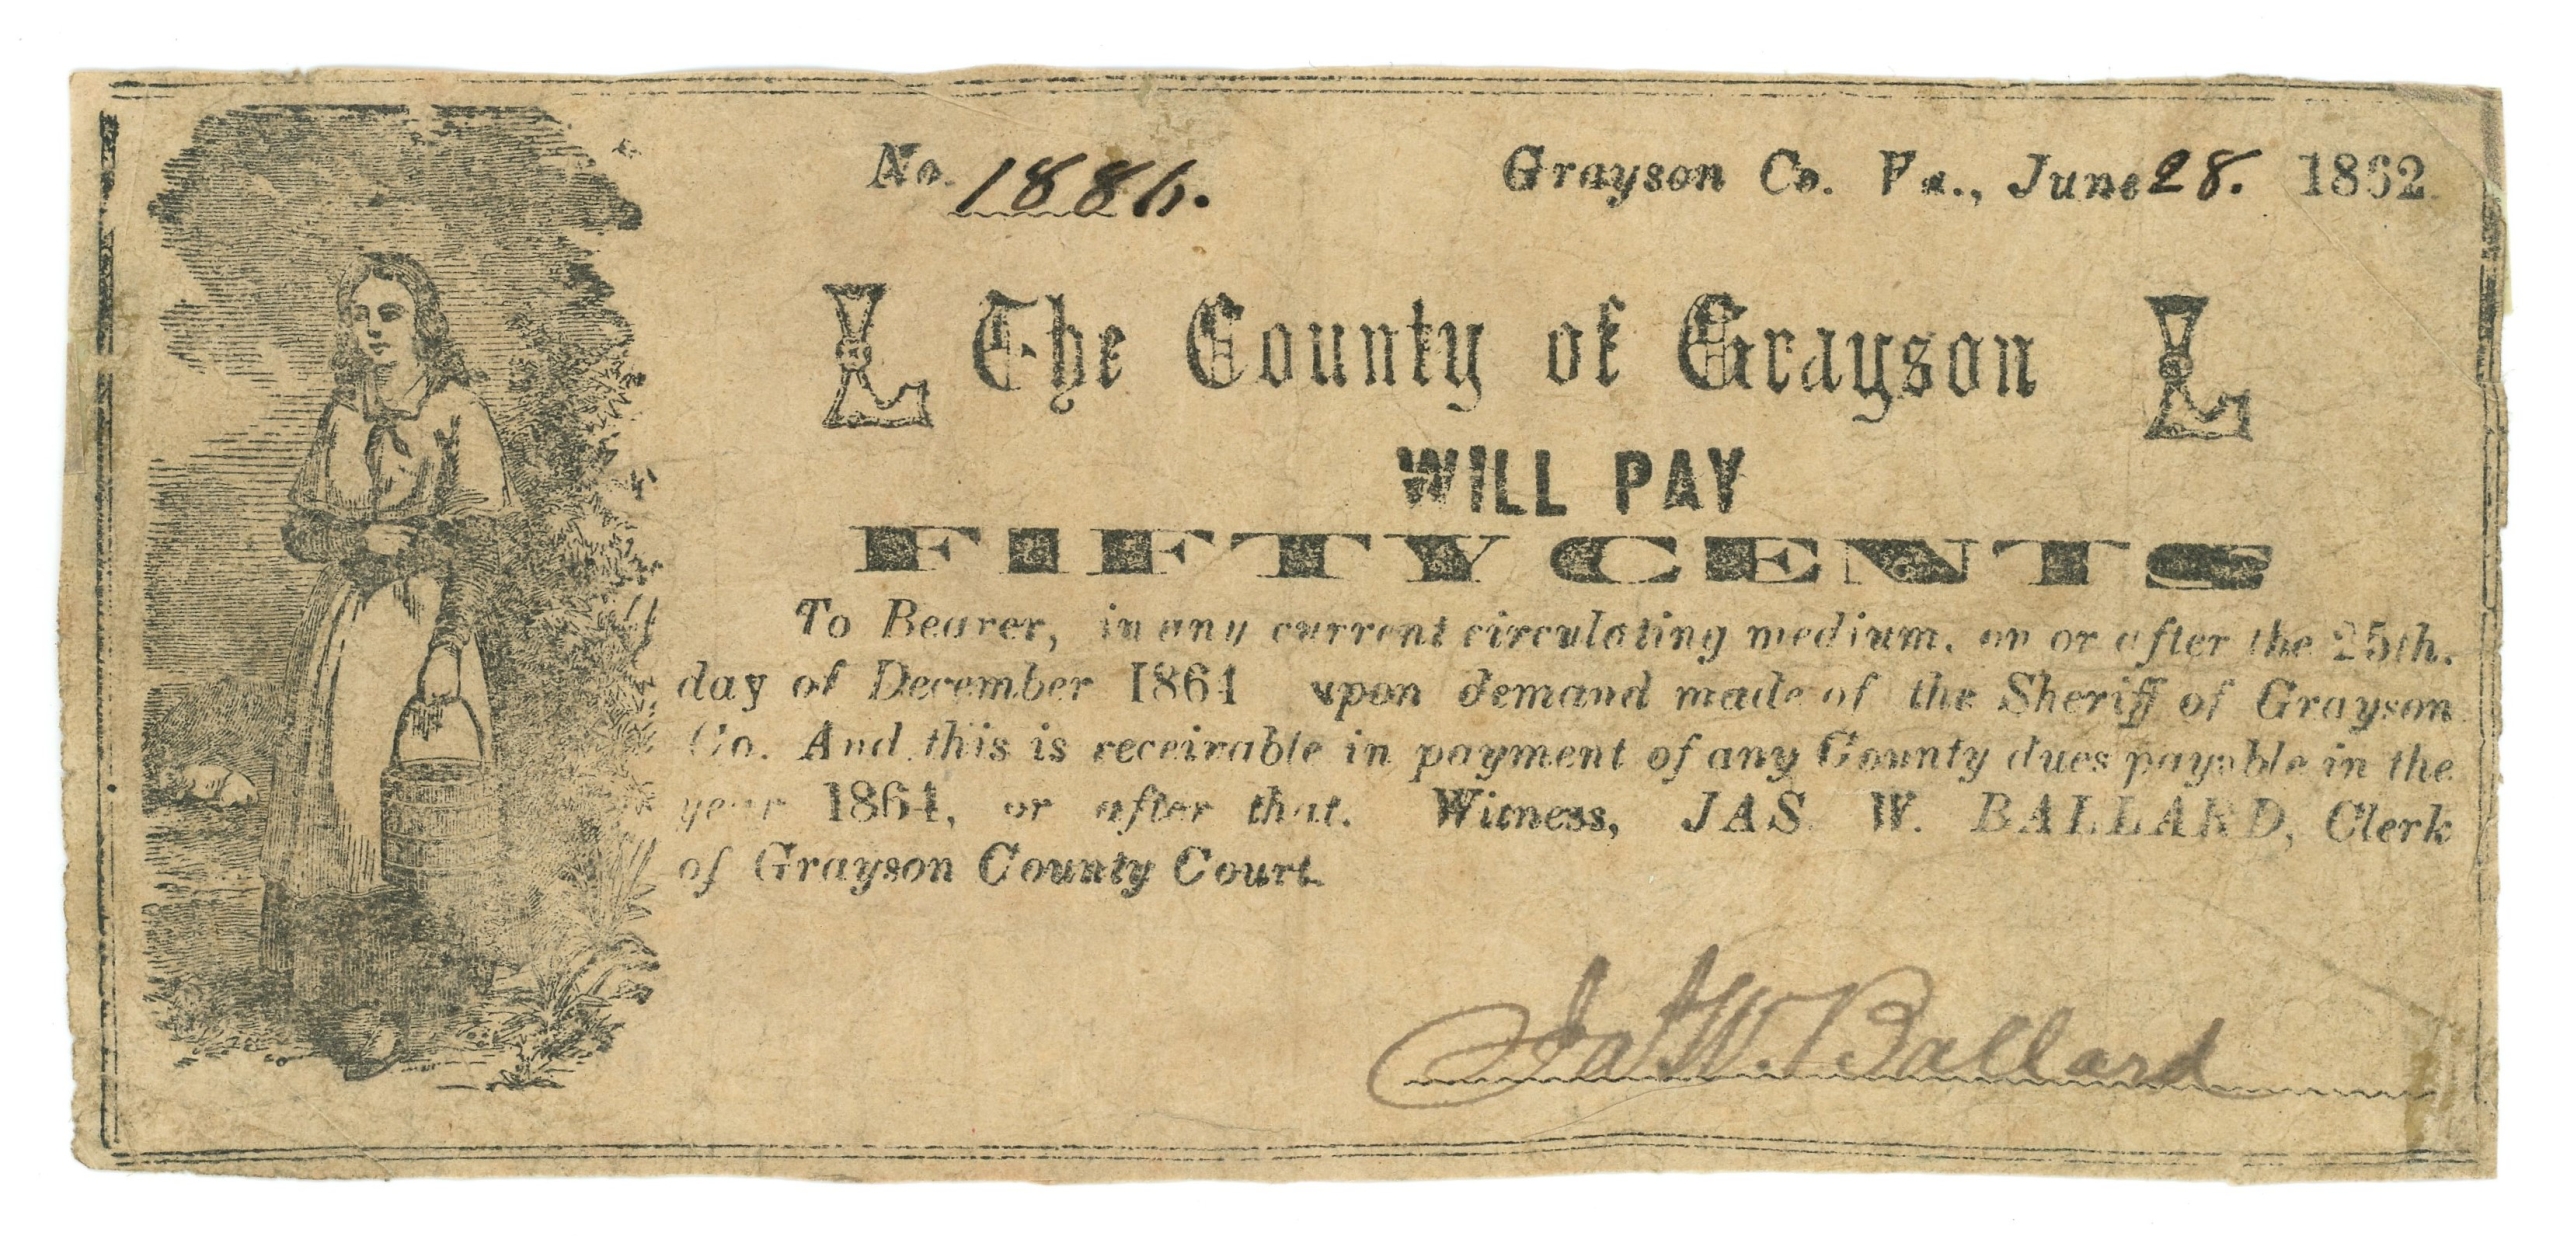 No. 1886. Grayson Co. Va., June 28. 1862.
L The County of Grayson L
WILL PAY
FIFTY CENTS
To Bearer, in any current circulating medium, on or after the 25th.
day of December 1864 upon demand made of the Sheriff of Grayson
Co. And this is receivable in payment of any County dues payable in the
year 1864, or after that. Witness, JAS. W. BALLARD, Clerk
of Grayson County Court.
Jas W. Ballard